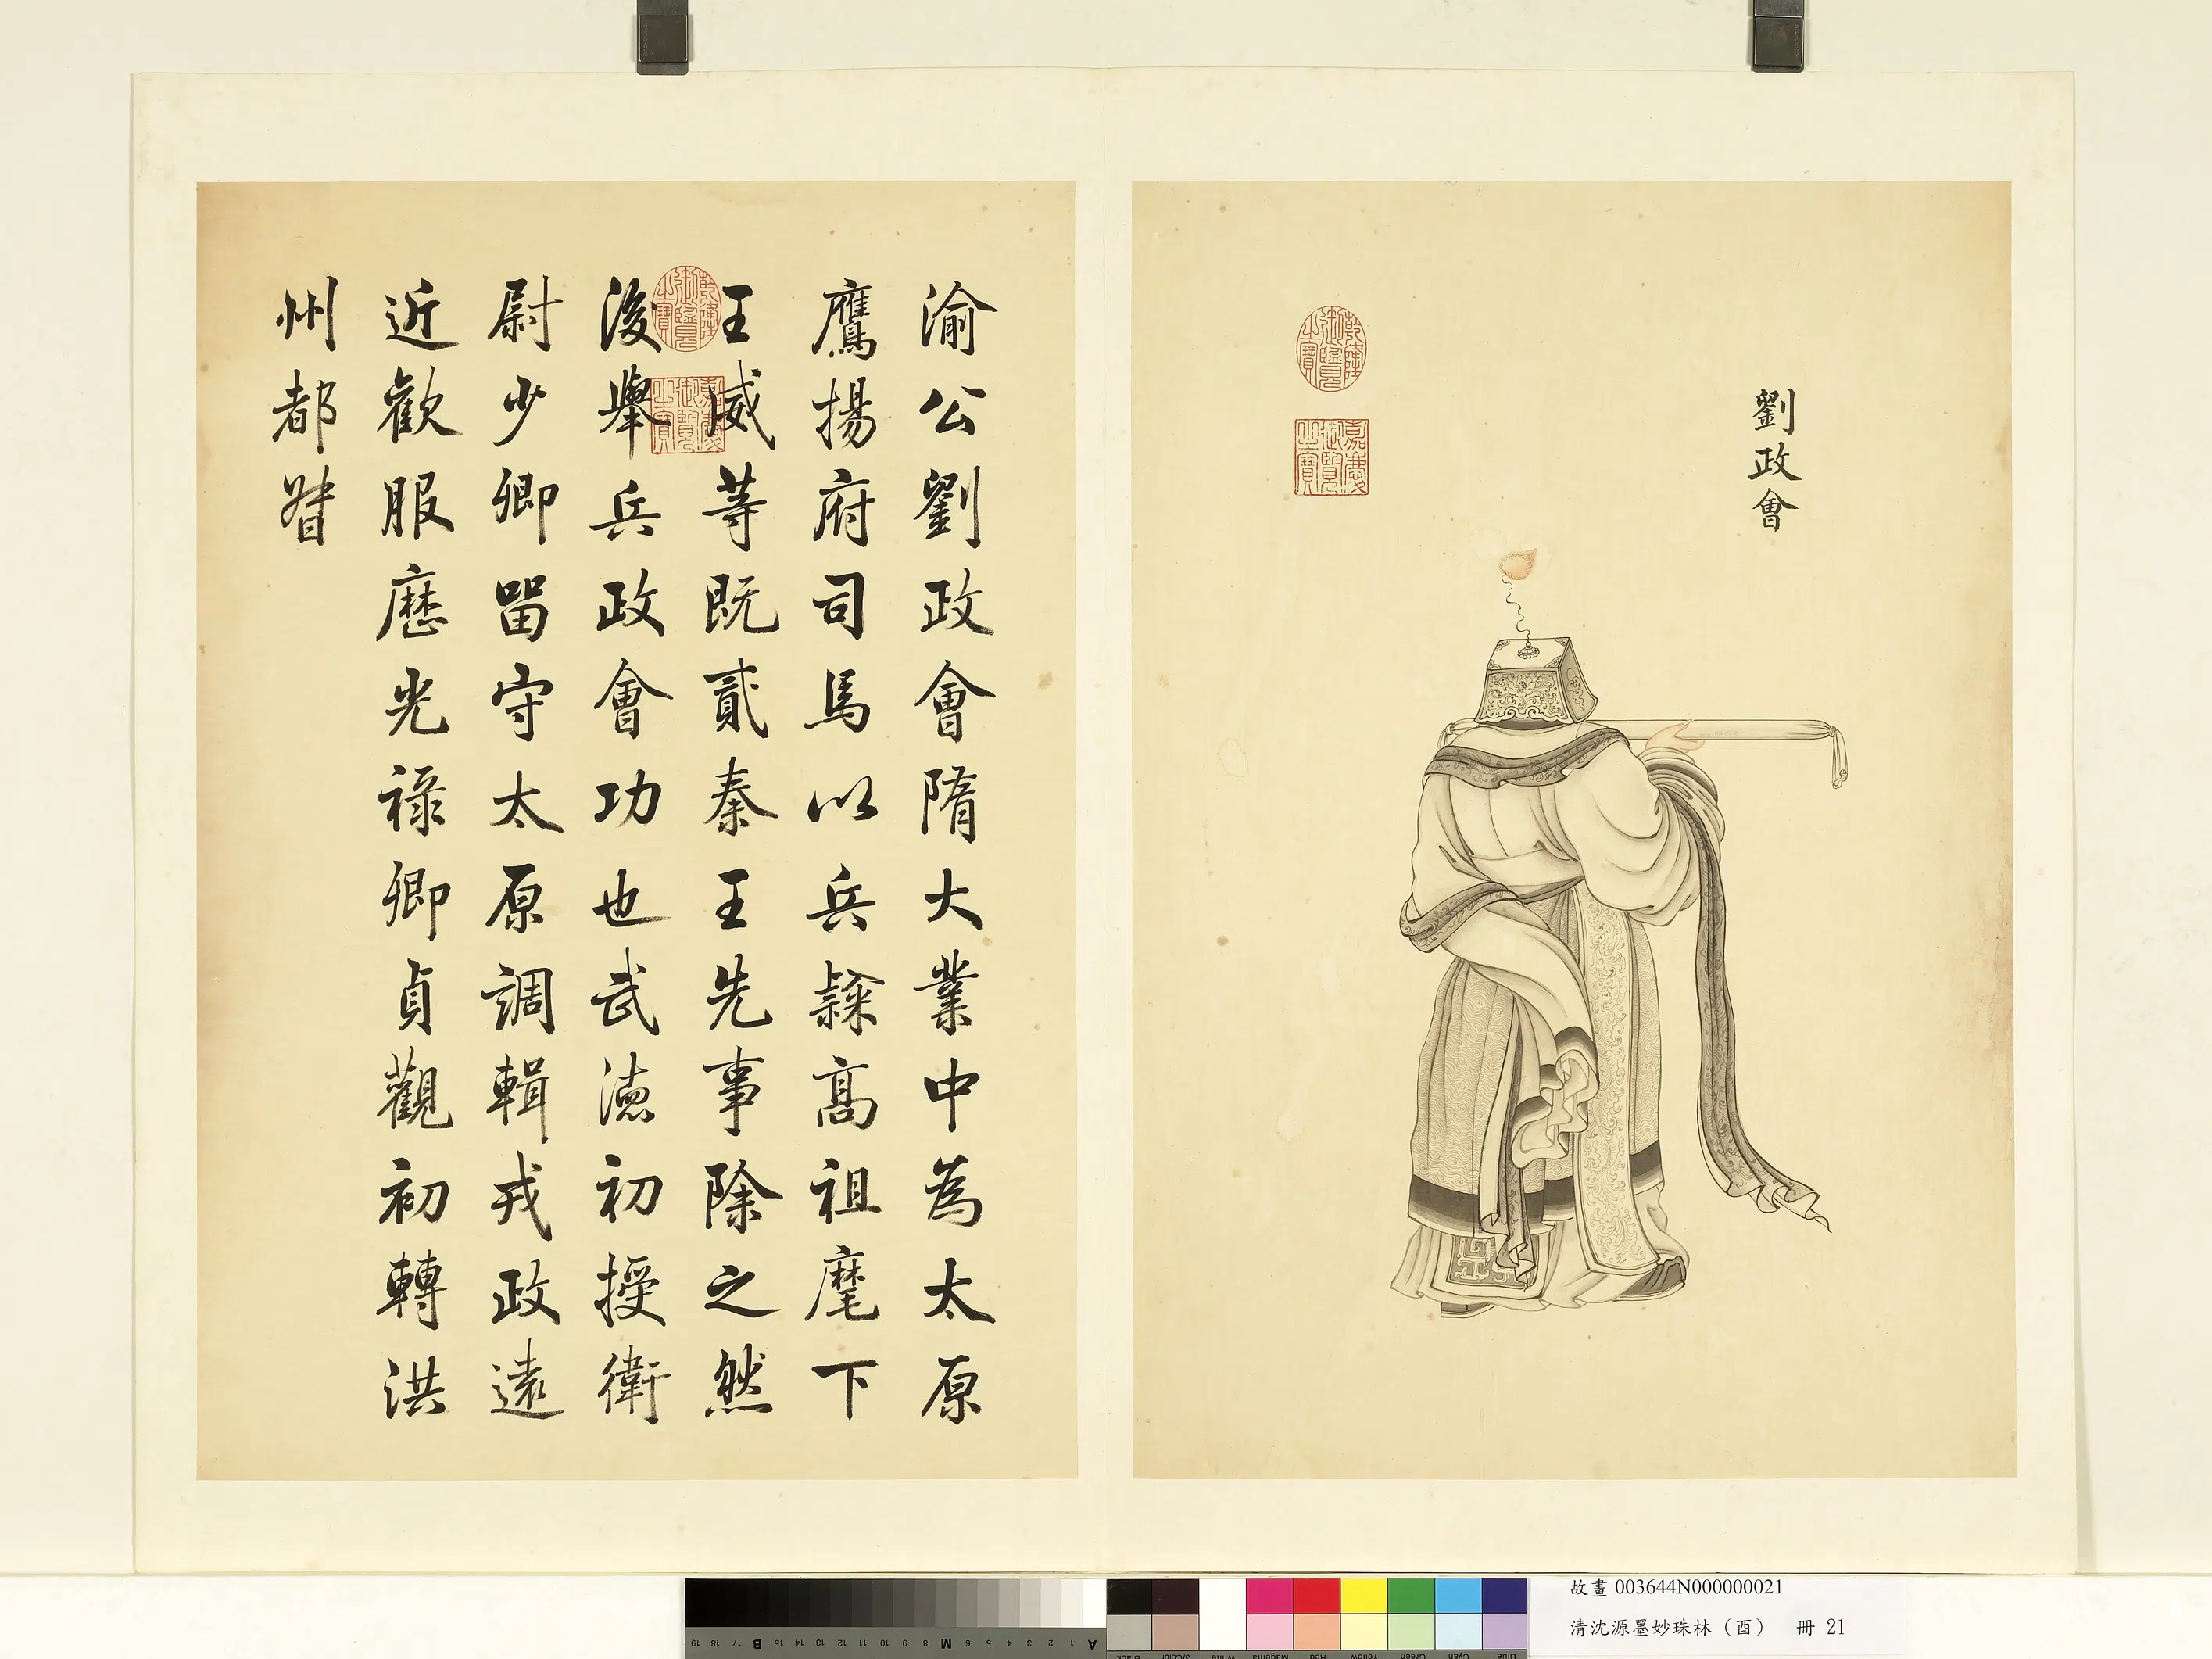 劉政會
乾隆御覽之寶
嘉慶御覽之寶
渝公劉政會隋大業中為太原
鷹揚府司馬以兵隸高祖麾下
王威等既貳秦王先事除之然
後舉兵政會功也武德初授衛
尉少卿留守太原調輯戎政遠
近歡服歷光祿卿貞觀初轉洪
州都督
乾隆御覽之寶
嘉慶御覽之寶
故畫 003644N000000021
清沈源墨妙珠林（酉） 冊 21
19 18 17 B 16 15 14 13 12 11 10 9 8 M 7 6 5 4 3 2 1 A
Black 3/Color White Magenta Red Yellow Green Cyan Blue